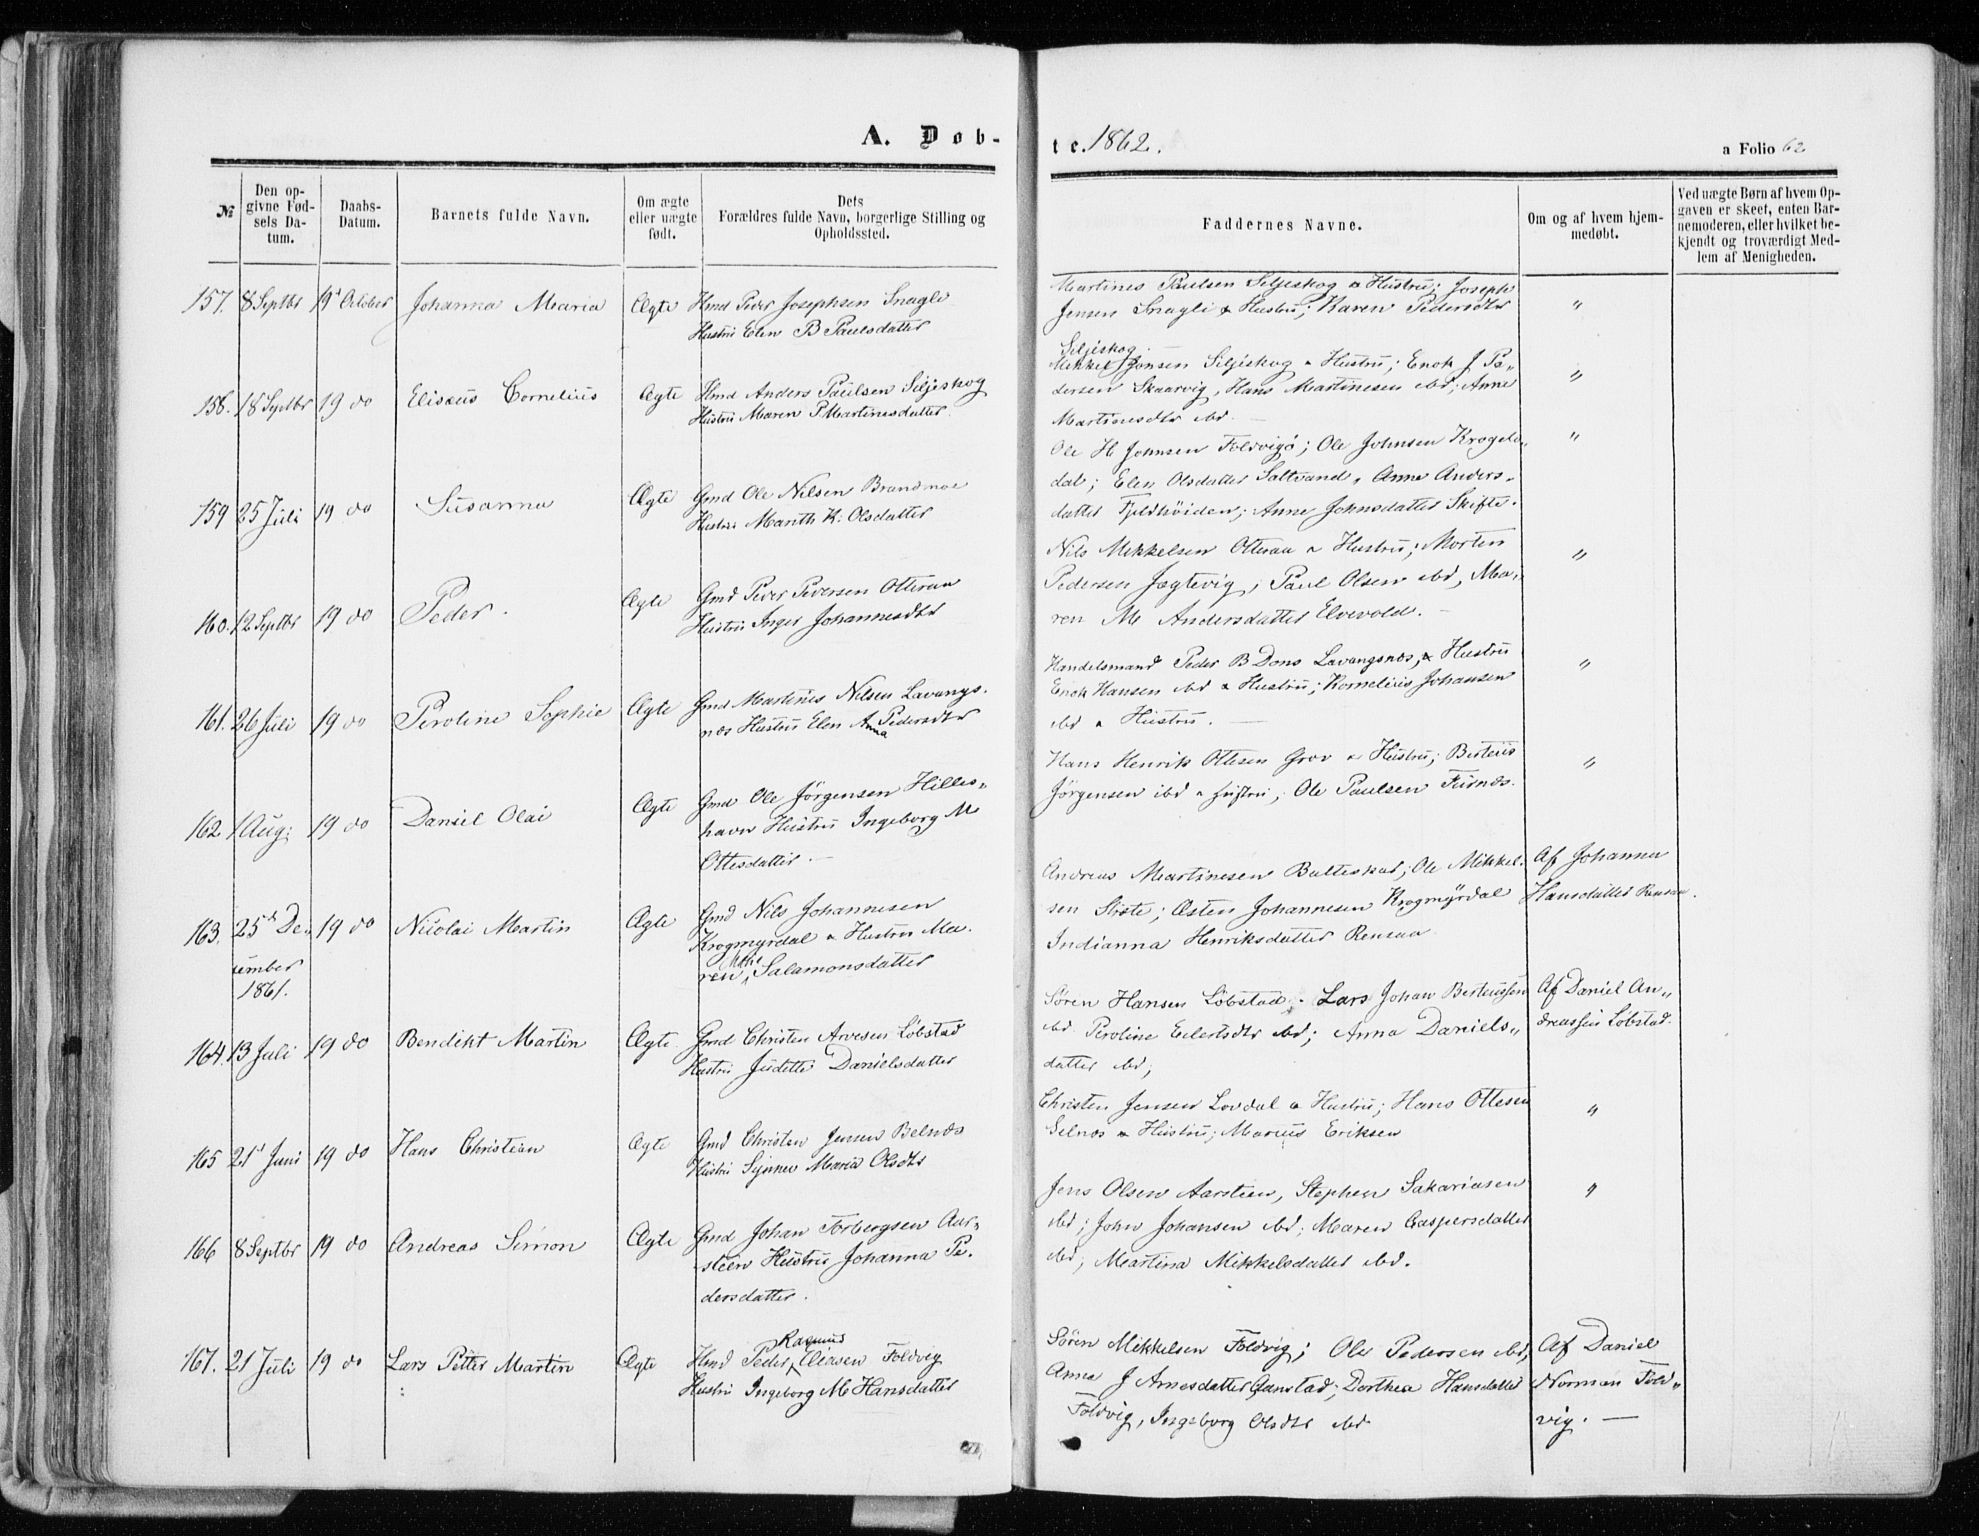 A. Døb-
te. 1862.
a Folio 62
№
Den op-
givne Fød-
sels Da-
tum.
Daabs-
Datum.
Barnets fulde Navn.
Om ægte
eller uægte
født.
Dets
Forældres fulde Navn, borgerlige Stilling og
Opholdssted.
Faddernes Navne.
Om og af hvem hjem-
medøbt.
Ved uægte Børn af hvem Op-
gaven er skeet, enten Bar-
nemoderen, eller hvilket be-
kjendt og troværdigt Med-
lem af Menigheden.
157. 8 Septbr 19d October Johanna Maria Ægte Hmd Peder Josephsen Snagli
Hustru Elen B Paulsdatter
Martines Paulsen Siljeskog & Hustru; Joseph
Jensen Snagli & Hustru; Karen Pedersdtr
Siljeskog. —
"
158. 18 Septbr 19 do Elisæus Cornelius Ægte Hmd Anders Paulsen Siljeskog
Hustru Maren P Martinesdatter.
Mikkel Jonsen Siljeskog & Hustru; Enok J Pe„
dersen Skaarvig, Hans Martinesen ibd; Anne
Martinesdtr ibd —
"
159 25 Juli 19 do Susanna Ægte Gmd Ole Nilsen Brandmoe
Hustru Marith K: Olsdatter
Ole H Johnsen Foldvigø; Ole Johnsen Krogelv„
dal; Elen Olsdatter Saltvand, Anne Anders„
datter Fjeldhøiden; Anne Johnsdatter Skifte.
"
160. 12 Septbr 19 do Peder. Ægte Gmd Peder Pedersen Otteraa
Hustru Inger Johannesdtr
Nils Mikkelsen Otteraa & Hustru; Morten
Pedersen Jægtevig; Paul Olsen ibd, Ma„
ren M Andersdatter Elvevold. —
"
161. 26 Juli 19 do Peroline Sophie Ægte Gmd Martinus Nilsen Lavangs.
næs Hustru Elen Anna Pedersdtr
Handelsmand Peder B Dons Lavangsnæs, & Hustru
Enok Hansen ibd & Hustru; Kornelius Johansen
ibd & Hustru. —
"
162 1 Aug: 19 do Daniel Olai Ægte Gmd Ole Jørgensen Hilles„
havn Hustru Ingeborg M
Ottesdatter. —
Hans Henrik Ottesen Grov & Hustru; Berteus
Jørgensen ibd & Hustru; Ole Paulsen Furnæs.
"
163. 25d De„
cember
1861. 19 do Nicolai Martin Ægte Gmd Nils Johannesen
Krogmyrdal & Hustru Ma„
ren Mrie Salamonsdatter
Andreas Martinesen Balteskard; Ole Mikkel.
sen Sliste; Østen Johannesen Krogmyrdal
Indianna Henriksdatter Rensaa
Af Johanna
Hansdatter Rensaa.
164. 13 Juli 19 do Bendikt Martin Ægte Gmd Christen Arvesen Løbstad
Hustru Judette Danielsdatter
Søren Hansen Løbstad. Lars Johan Berteussen
ibd. Peroline Eilertsdtr ibd; Anna Daniels„
datter ibd;
Af Daniel An„
dreassen Løbstad.
165 21d Juni 19 do Hans Christian Ægte Gmd Christen Jensen Selnæs
Hustru Synnev Maria Olsdtr
Christen Jensen Lovdal & Hustru; Hans Ottesen
Selnæs & Hustru; Marius Eriksen
"
166 8 Septbr 19 do Andreas Simon Ægte Gmd Johan Torbergsen Aar„
steen Hustru Johanna Pe.
dersdatter.
Jens Olsen Aarsteen, Stephen Sakariasen
ibd; John Johansen ibd; Maren Caspersdatter
ibd; Martina Mikkelsdatter ibd.
"
167. 21 Juli 19 do Lars Petter Martin Ægte Hmd Peder Rasmus Eliasen Foldvig
Hustru Ingeborg M Hansdatter
Søren Mikkelsen Foldvig; Ole Pedersen ibd,
Anna J Arnesdatter Ganstad; Dorthea Hansdatter
Foldvig, Ingeborg Olsdtr ibd
Af Daniel
Norman Fold„
vig. —